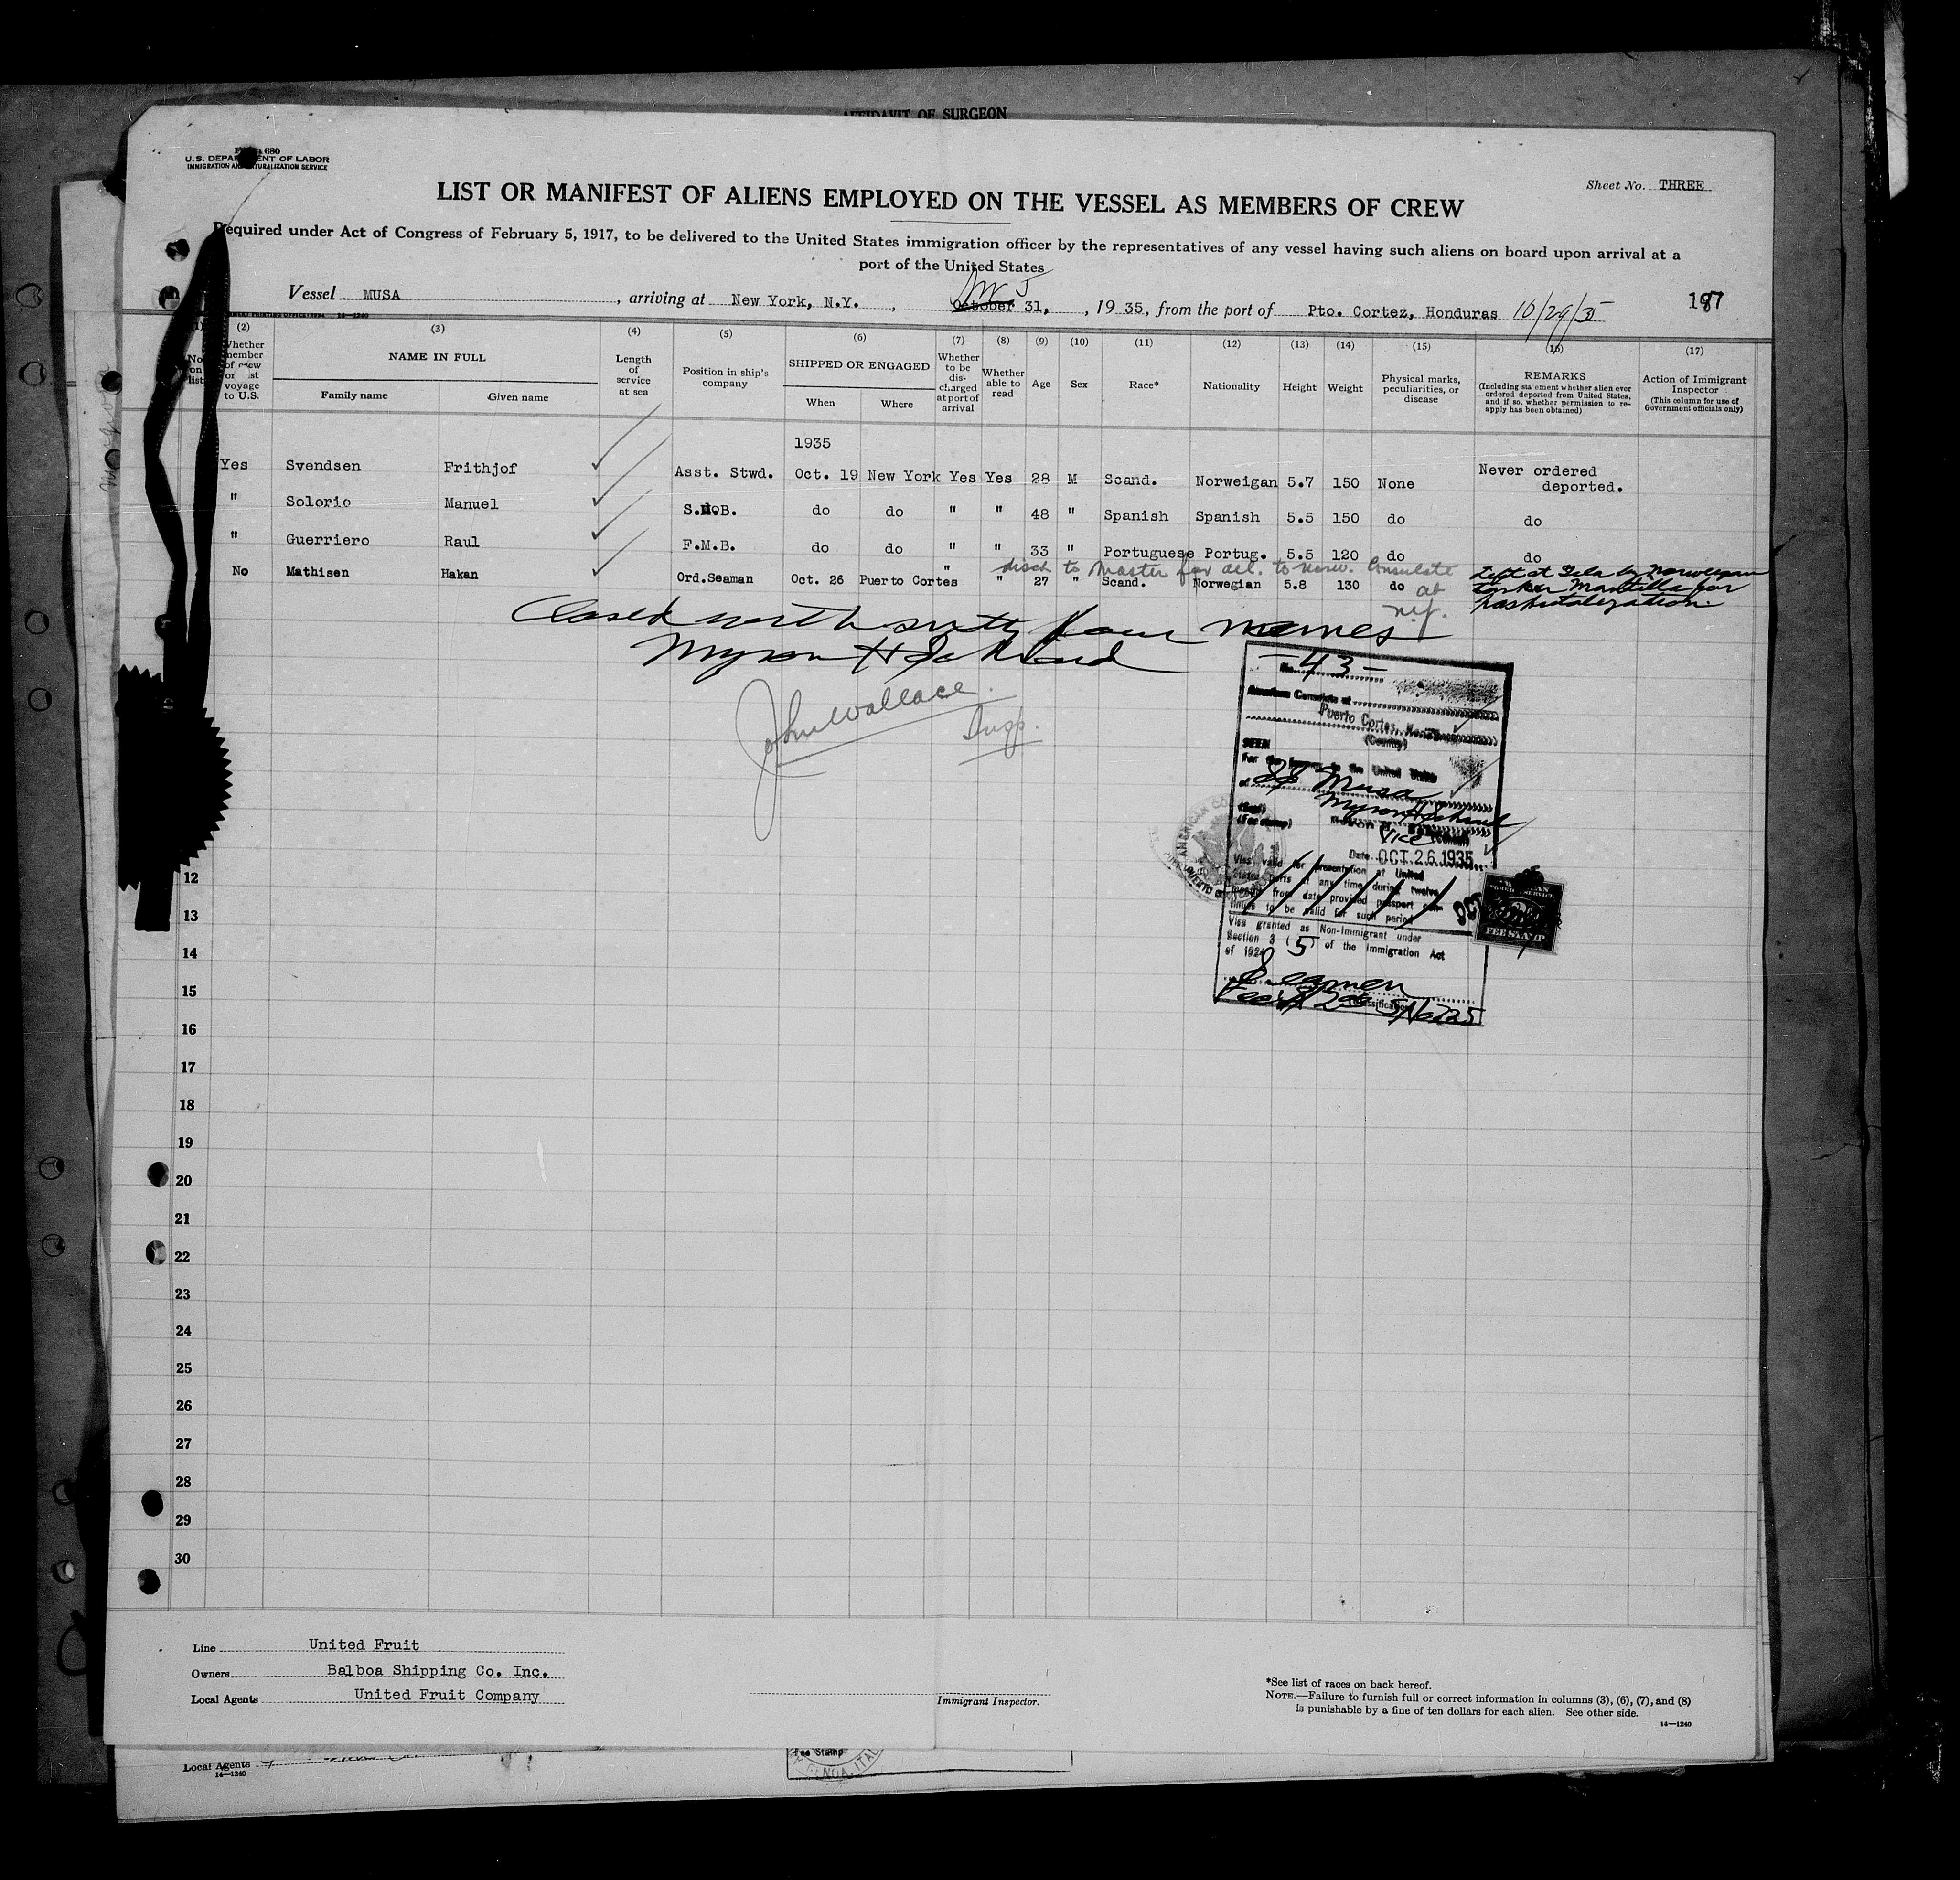 AFFIDAVIT OF SURGEON
680
U.S. DEPARTMENT OF LABOR
IMMIGRATION AND NATURALIZATION SERVICE
Sheet No. THREE
LIST OR MANIFEST OF ALIENS EMPLOYED ON THE VESSEL AS MEMBERS OF CREW
Required under Act of Congress of February 5, 1917, to be delivered to the United States immigration officer by the representatives of any vessel having such aliens on board upon arrival at a
port of the United States
Vessel MUSA, arriving at New York, N.Y., October 31, 1935, from the port of Pto. Cortez, Honduras 10/29/35
187
(1) (2) (3) (4) (5) (6) (7) (8) (9) (10) (11) (12) (13) (14) (15) (16) (17)
No. on list
Whether member of crew on last voyage to U.S.
NAME IN FULL
Family name
Given name
Length of service at sea
Position in ship's company
SHIPPED OR ENGAGED
When
Where
Whether to be discharged at port of arrival
Whether able to read
Age
Sex
Race*
Nationality
Height
Weight
Physical marks, peculiarities, or disease
REMARKS
(Including statement whether alien ever ordered deported from United States, and if so, whether permission to reapply has been obtained)
Action of Immigrant Inspector
(This column for use of Government officials only)
1935
Yes Svendsen Frithjof Asst. Stwd. Oct. 19 New York Yes Yes 28 M Scand. Norweigan 5.7 150 None Never ordered deported.
" Solorio Manuel S.M.B. do do " " 48 " Spanish Spanish 5.5 150 do do
" Guerriero Raul F.M.B. do do " " 33 " Portuguese Portug. 5.5 120 do do
disch to Master for del. to Norw. Consulate at N.Y.
No Mathisen Hakan Ord.Seaman Oct. 26 Puerto Cortes " " 27 " Scand. Norwegian 5.8 130 do Left at Tela by Norwegian
tanker Mantilla for
hospitalization.
Closed with sixty four names
Myron H Schraud
John Wallace
Insp.
No. 43
American Consulate at
Puerto Cortes, Honduras
(Country)
SEEN
For the journey to the United States
of SS Musa
Myron H Schraud
(Seal)
(Fee stamp)
Vice Consul
Date OCT 26 1935
Visa valid for presentation at United
States Ports at any time during twelve
months from date provided passport con-
tinues to be valid for such period
Visa granted as Non-Immigrant under
Section 3 (5) of the Immigration Act
of 1924
Seamen
Classification
FEE STAMP
12
13
14
15
16
17
18
19
20
21
22
23
24
25
26
27
28
29
30
Line United Fruit
Owners Balboa Shipping Co. Inc.
Local Agents United Fruit Company
Immigrant Inspector.
*See list of races on back hereof.
NOTE.—Failure to furnish full or correct information in columns (3), (6), (7), and (8)
is punishable by a fine of ten dollars for each alien. See other side.
14—1240
Local Agents
14—1240
Fee Stamp
GENOA, ITAL